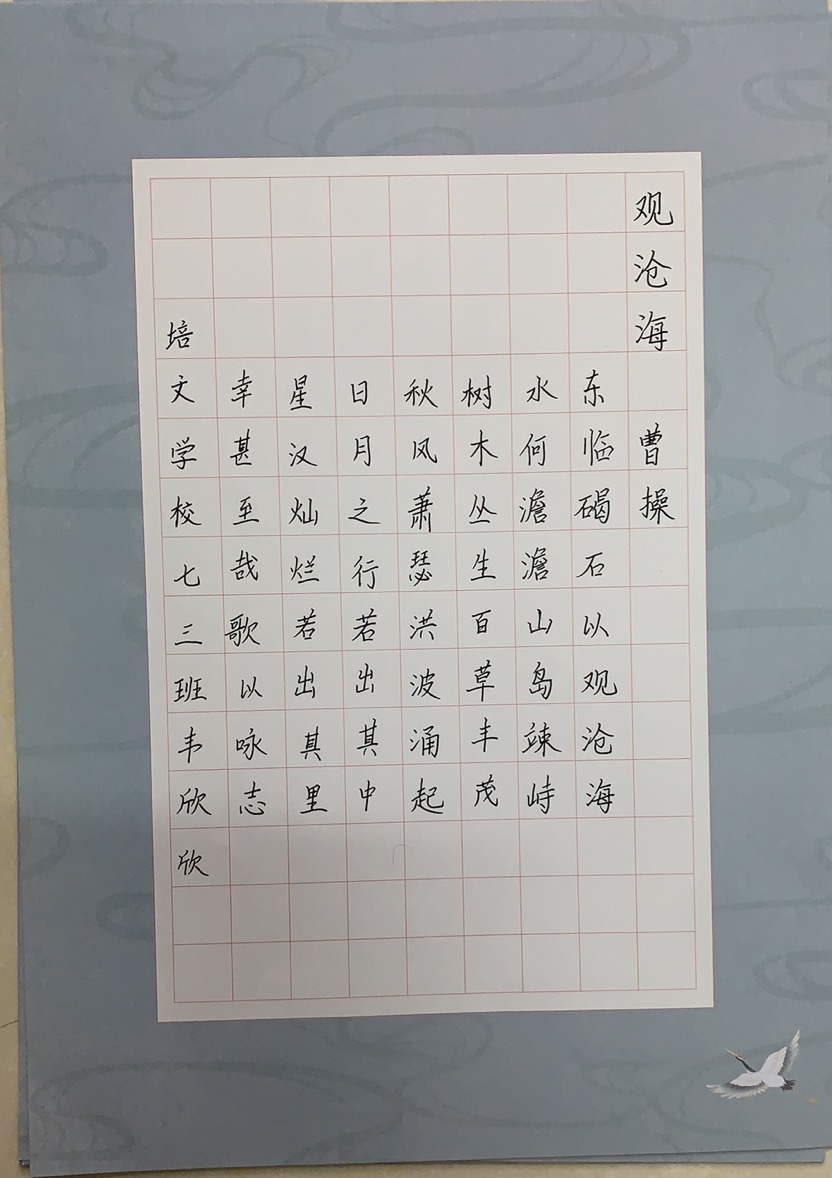 观沧海 曹操
东临碣石以观沧海
水何澹澹山岛竦峙
树木丛生百草丰茂
秋风萧瑟洪波涌起
日月之行若出其中
星汉灿烂若出其里
幸甚至哉歌以咏志
培文学校七三班韦欣欣